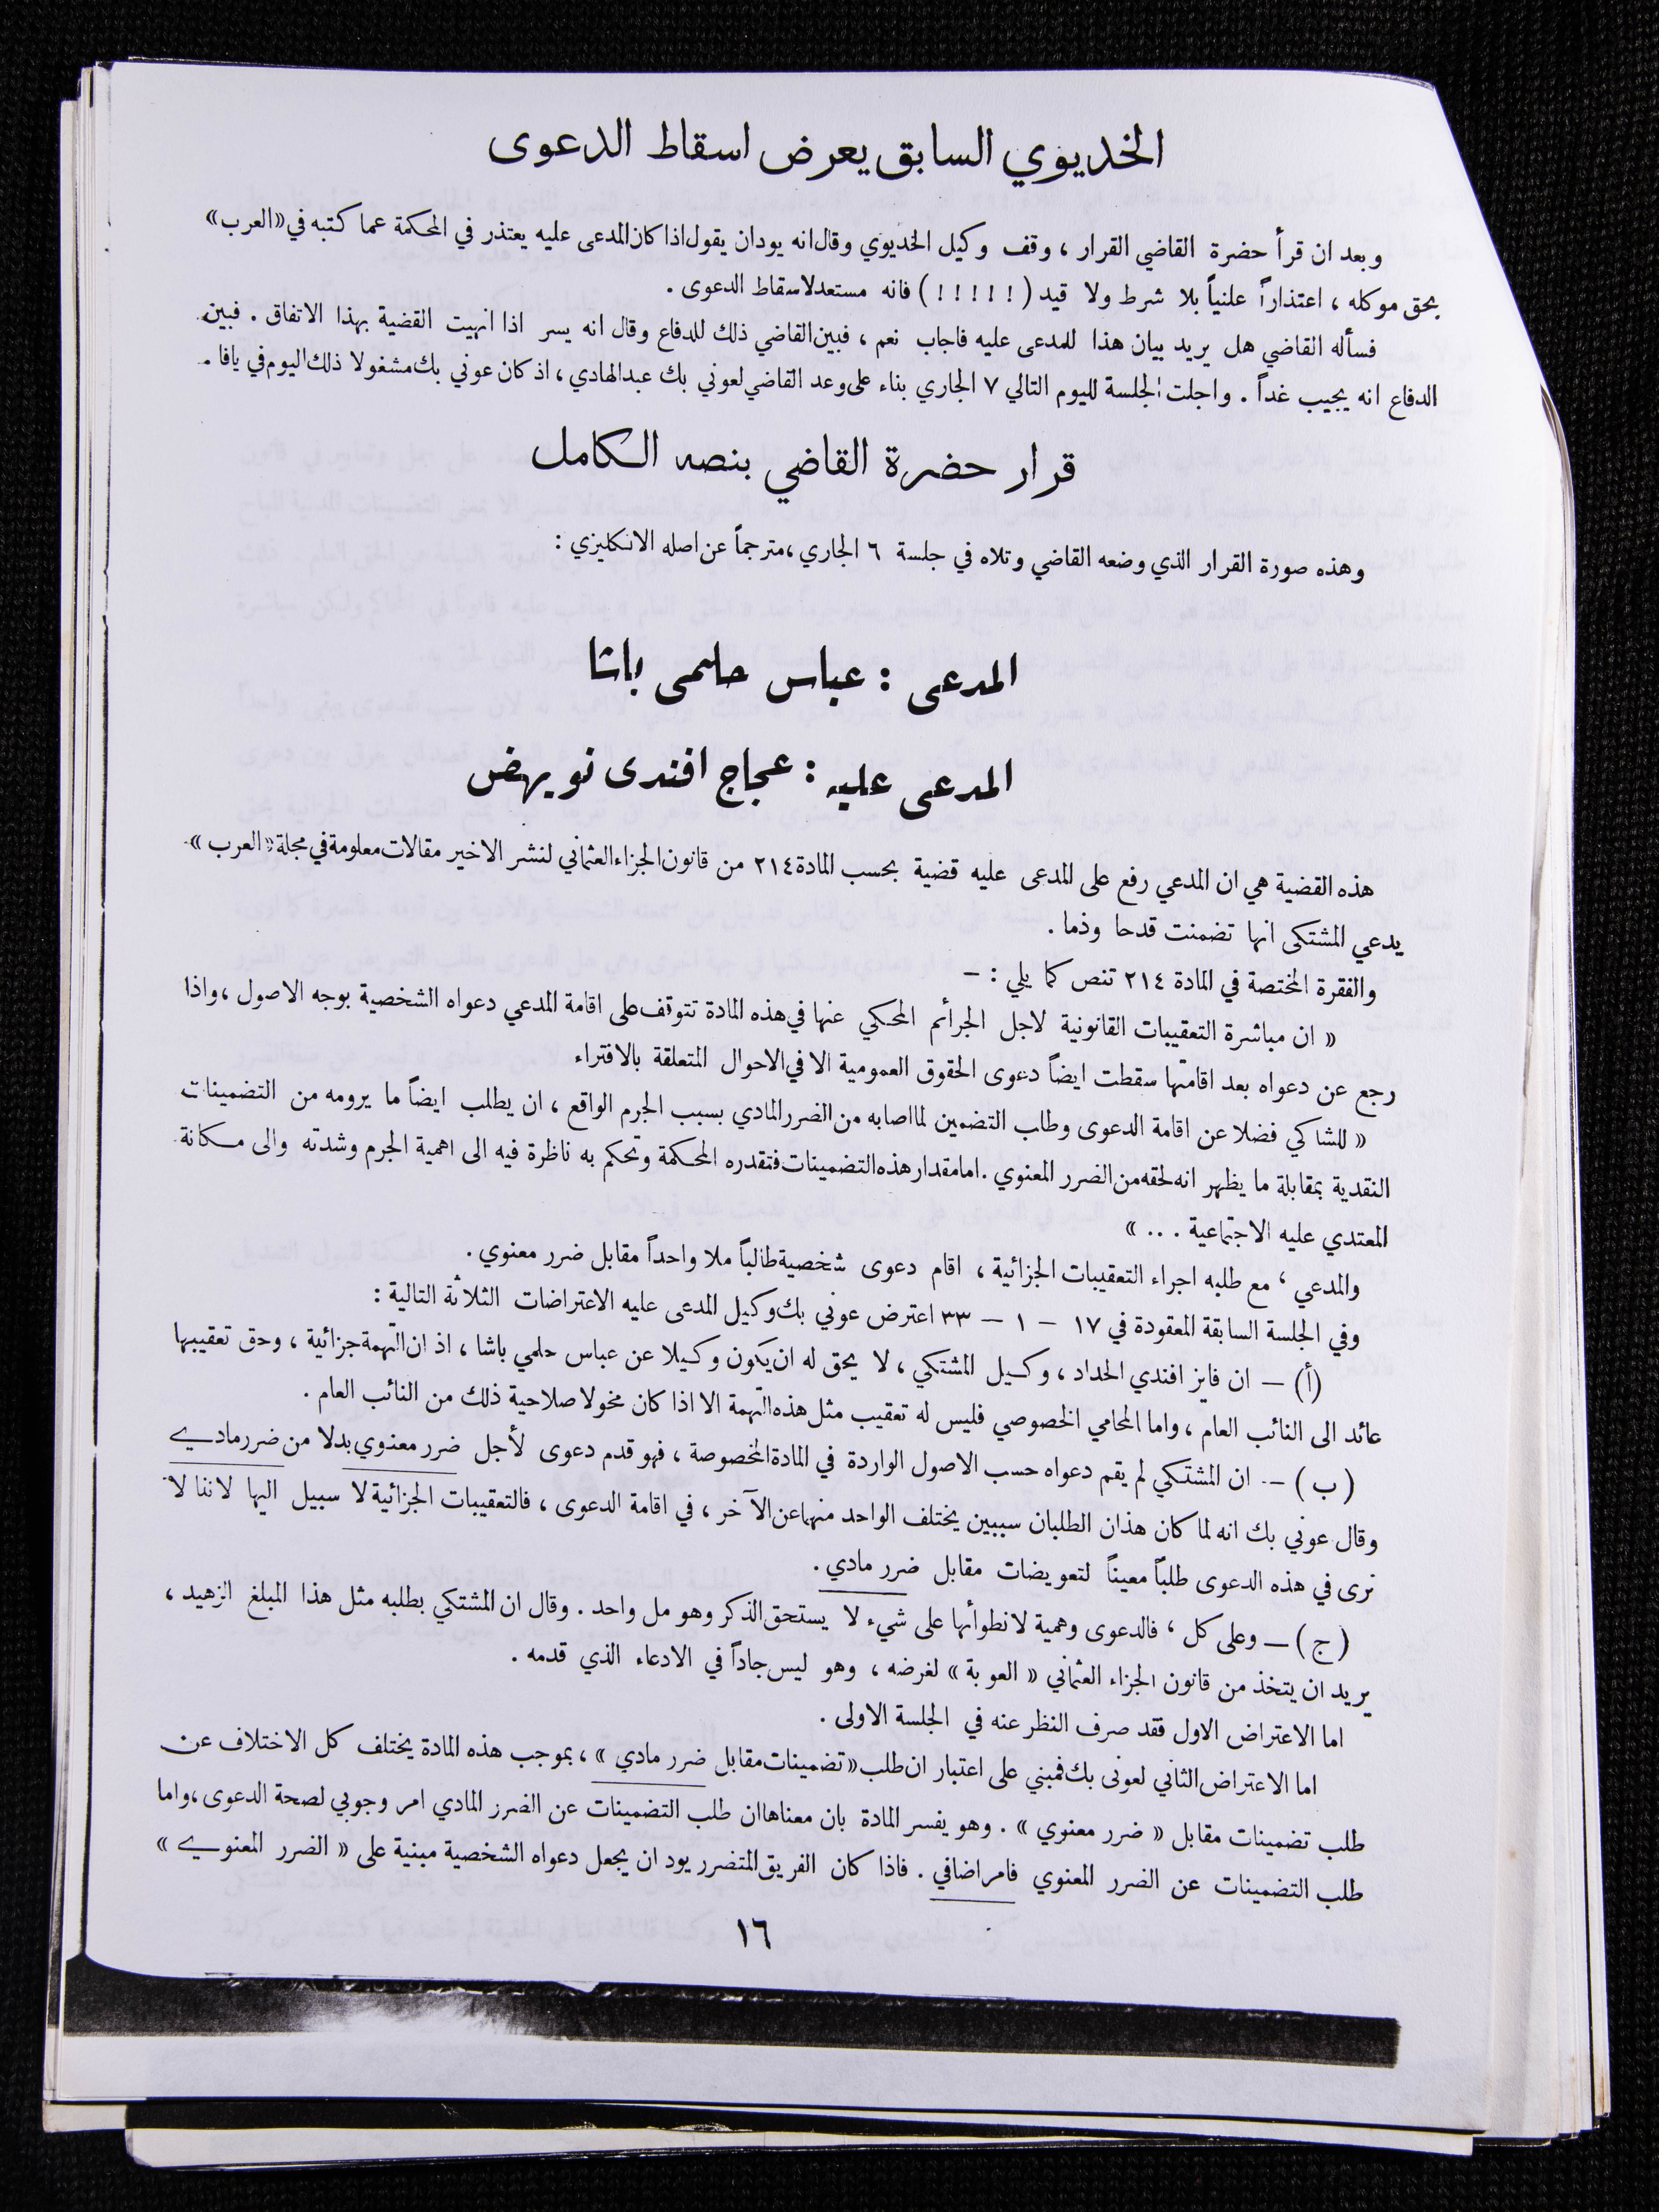 الخديوي السابق يعرض اسقاط الدعوى
وبعد ان قرأ حضرة القاضي القرار ، وقف وكيل الخديوي وقال انه يود ان يقول اذا كان المدعى عليه يعتذر في المحكمة عما كتبه في «العرب»
بحق موكله ، اعتذاراً علنياً بلا شرط ولا قيد ( ! ! ! ! ! ) فانه مستعد لاسقاط الدعوى .
فسأله القاضي هل يريد بيان هذا للمدعى عليه فاجاب نعم ، فبين القاضي ذلك للدفاع وقال انه يسر اذا انهيت القضية بهذا الاتفاق . فبين
الدفاع انه يجيب غداً . واجلت الجلسة لليوم التالي ٧ الجاري بناء على وعد القاضي لعوني بك عبدالهادي ، اذ كان عوني بك مشغولا ذلك اليوم في يافا .
قرار حضرة القاضي بنصه الكامل
وهذه صورة القرار الذي وضعه القاضي وتلاه في جلسة ٦ الجاري ، مترجماً عن اصله الانكليزي :
المدعى : عباس حلمى باشا
المدعى عليه : عجاج افندى نويهض
هذه القضية هي ان المدعي رفع على المدعى عليه قضية بحسب المادة ٢١٤ من قانون الجزاء العثماني لنشر الاخير مقالات معلومة في مجلة «العرب»
يدعي المشتكى انها تضمنت قدحا وذما .
والفقرة المختصة في المادة ٢١٤ تنص كما يلي : –
« ان مباشرة التعقيبات القانونية لاجل الجرأئم المحكي عنها في هذه المادة تتوقف على اقامة المدعي دعواه الشخصية بوجه الاصول ، واذا
رجع عن دعواه بعد اقامتها سقطت ايضاً دعوى الحقوق العمومية الا في الاحوال المتعلقة بالافتراء
« للشاكي فضلا عن اقامة الدعوى وطاب التضمين لما اصابه من الضرر المادي بسبب الجرم الواقع ، ان يطلب ايضاً ما يرومه من التضمينات
النقدية بمقابلة ما يظهر انه لحقه من الضرر المعنوي . اما مقدار هذه التضمينات فتقدره المحكمة وتحكم به ناظرة فيه الى اهمية الجرم وشدته والى مكانة
المعتدي عليه الاجتماعية . . . »
والمدعي ، مع طلبه اجراء التعقيبات الجزائية ، اقام دعوى شخصية طالباً ملا واحداً مقابل ضرر معنوي .
وفي الجلسة السابقة المعقودة في ١٧ – ١ – ٣٣ اعترض عوني بك وكيل المدعى عليه الاعتراضات الثلاثة التالية :
(أ) – ان فايز افندي الحداد ، وكيل المشتكي ، لا يحق له ان يكون وكيلا عن عباس حلمي باشا ، اذ ان التهمة جزائية ، وحق تعقيبها
عائد الى النائب العام ، واما المحامي الخصوصي فليس له تعقيب مثل هذه التهمة الا اذا كان مخولا صلاحية ذلك من النائب العام .
( ب ) – ان المشتكي لم يقم دعواه حسب الاصول الواردة في المادة المخصوصة ، فهو قدم دعوى لأجل ضرر معنوي بدلا من ضرر مادي
وقال عوني بك انه لما كان هذان الطلبان سببين يختلف الواحد منهما عن الآخر ، في اقامة الدعوى ، فالتعقيبات الجزائية لا سبيل اليها لاننا لا
نرى في هذه الدعوى طلباً معيناً لتعويضات مقابل ضرر مادي .
( ج ) – وعلى كل ، فالدعوى وهمية لانطوأها على شيء لا يستحق الذكر وهو مل واحد . وقال ان المشتكي بطلبه مثل هذا المبلغ الزهيد ،
يريد ان يتخذ من قانون الجزاء العثماني « العوبة » لغرضه ، وهو ليس جاداً في الادعاء الذي قدمه .
اما الاعتراض الاول فقد صرف النظر عنه في الجلسة الاولى .
اما الاعتراض الثاني لعونى بك فمبني على اعتبار ان طلب «تضمينات مقابل ضرر مادي » ، بموجب هذه المادة يختلف كل الاختلاف عن
طلب تضمينات مقابل « ضرر معنوي » . وهو يفسر المادة بان معناها ان طلب التضمينات عن الضرر المادي امر وجوبي لصحة الدعوى ، واما
طلب التضمينات عن الضرر المعنوي فامر اضافي . فاذا كان الفريق المتضرر يود ان يجعل دعواه الشخصية مبنية على « الضرر المعنوي »
١٦